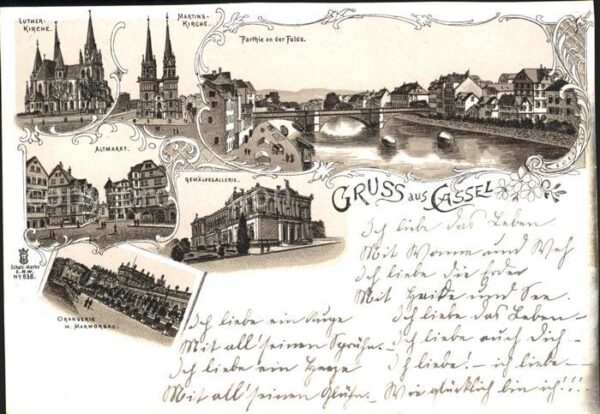 LUTHER-
KIRCHE.
MARTINS-
KIRCHE.
Parthie an der Fulda.
ALTMARKT.
GEMÄLDEGALLERIE.
GRUSS aus CASSEL
Schutz-Marke
No 838.
ORANGERIE
M. MARMORBAD.
Ich liebe das Leben
Mit Wonne und Weh
Ich liebe die Erde
Mit Heide und See.
Ich liebe ein Auge
Mit all' seinen Sprühn.
Ich liebe ein Herze
Mit all' seinen Glühn.
Ich liebe das Leben –
Ich liebe auch Dich –
Ich liebe! – ich liebe –
Wie glücklich bin ich!!!